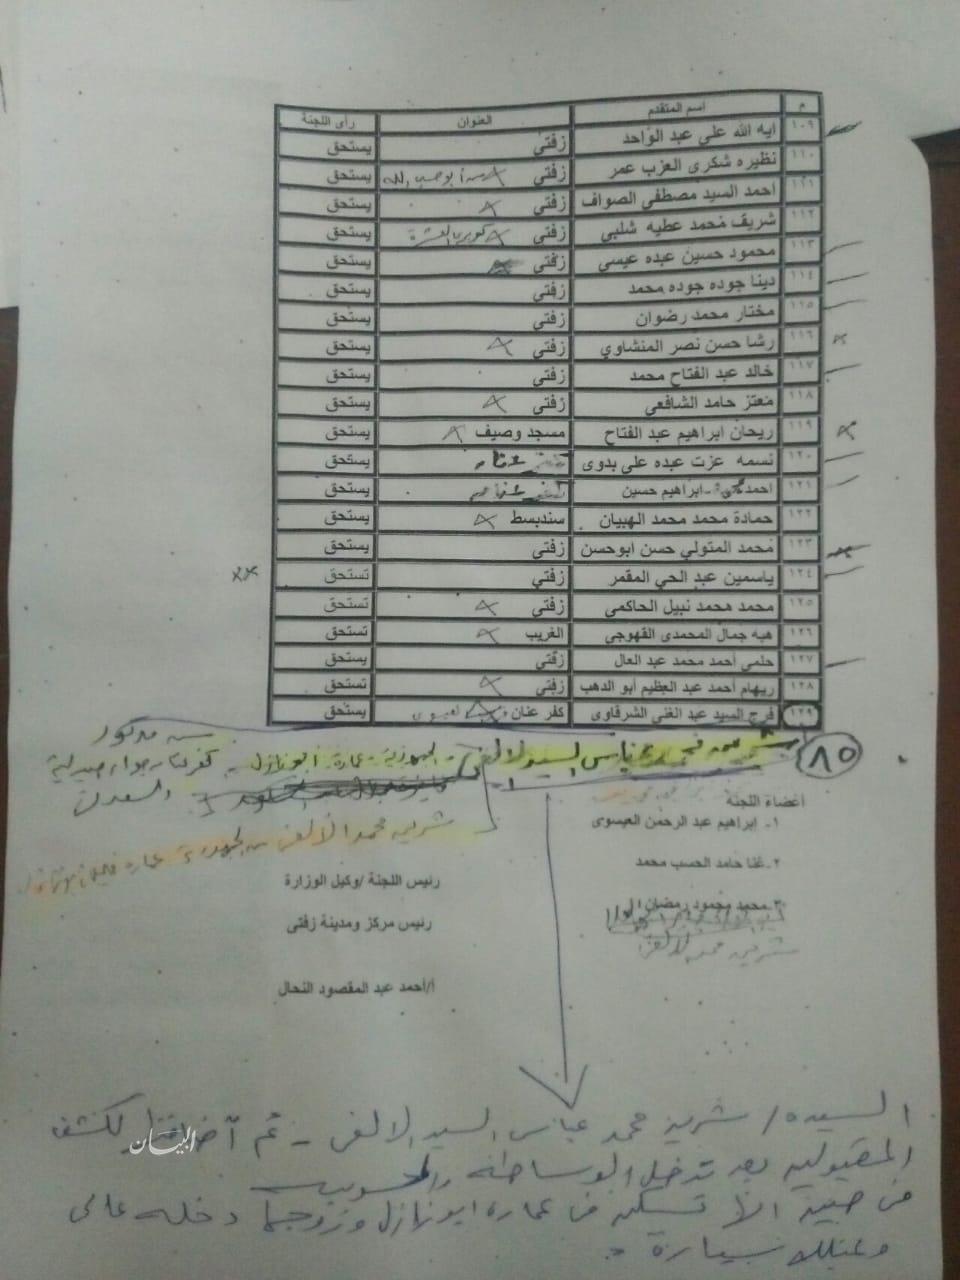 م اسم المتقدم العنوان رأى اللجنة
١٠٩ ايه الله على عبد الواحد زفتى يستحق
١١٠ نظيره شكرى العزب عمر زفتى يستحق
١١١ احمد السيد مصطفى الصواف زفتى يستحق
١١٢ شريف محمد عطيه شلبى زفتى يستحق
١١٣ محمود حسين عبده عيسى زفتى يستحق
١١٤ دينا جوده جوده محمد زفتى يستحق
١١٥ مختار محمد رضوان زفتى يستحق
١١٦ رشا حسن نصر المنشاوي زفتى يستحق
١١٧ خالد عبد الفتاح محمد زفتى يستحق
١١٨ معتز حامد الشافعى زفتى يستحق
١١٩ ريحان ابراهيم عبد الفتاح مسجد وصيف يستحق
١٢٠ نسمه عزت عبده على بدوى يستحق
١٢١ احمد ابراهيم حسين يستحق
١٢٢ حمادة محمد محمد الهبيان سندبسط يستحق
١٢٣ محمد المتولي حسن ابوحسن زفتى يستحق
١٢٤ ياسمين عبد الحي المقمر زفتي تستحق
١٢٥ محمد محمد نبيل الحاكمى زفتى تستحق
١٢٦ هبه جمال المحمدى القهوجى الغريب تستحق
١٢٧ حلمى أحمد محمد عبد العال زفتى يستحق
١٢٨ ريهام أحمد عبد العظيم أبو الدهب زفتى تستحق
١٢٩ فرج السيد عبد الغنى الشرقاوى كفر عنان يستحق
٨٥
أعضاء اللجنة
١- إبراهيم عبد الرحمن العيسوى
شرين محمد الألفى
٢- غنا حامد الحسب محمد
رئيس اللجنة /وكيل الوزارة
٣- محمد محمود رمضان
رئيس مركز ومدينة زفتى
شرين محمد الألفى
أ/أحمد عبد المقصود النحال
السيده / شرين محمد عباس السيد الالفى - تم لكشف
البيان
المقبولين بعد تدخل الوساطه والمحسوبيه
فى حين انها تسكن فى عماره ابونازل وزوجها دخله عالى
ويمتلك سيارة .